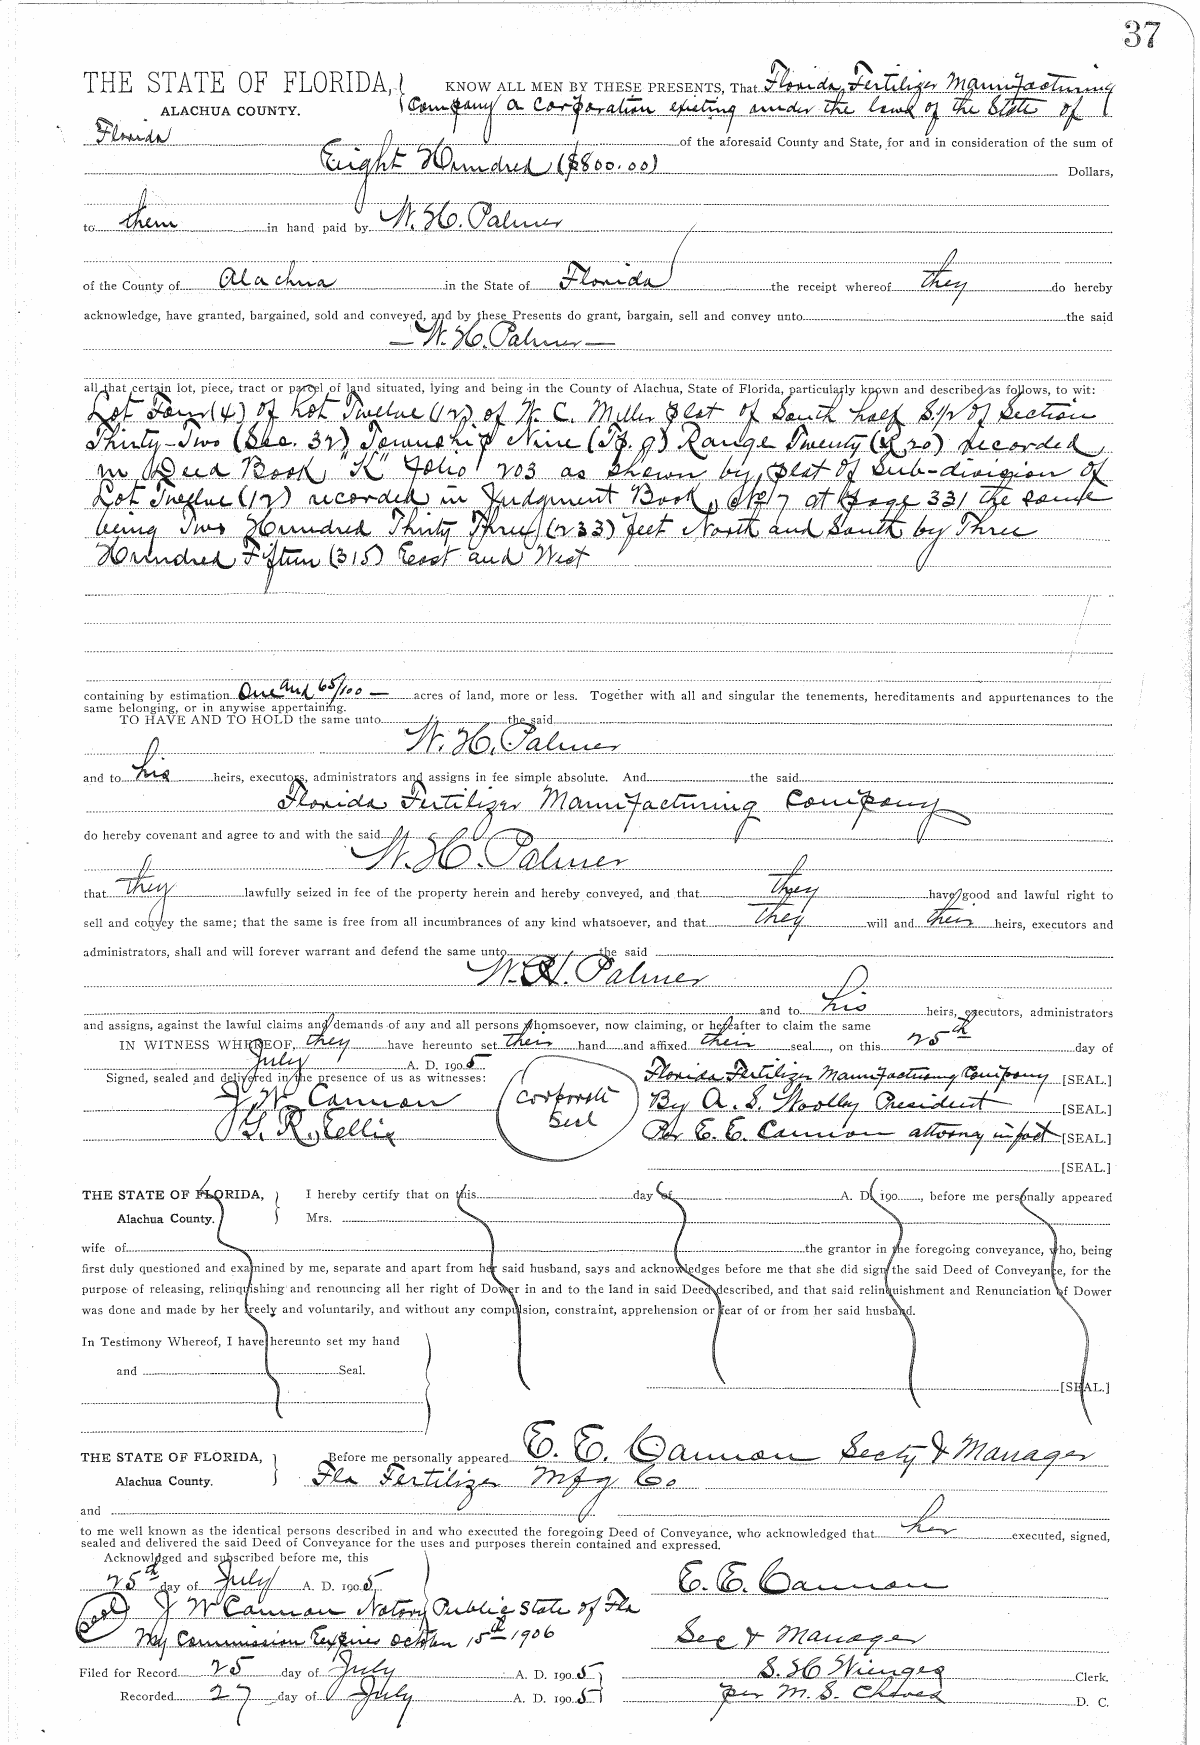 37
THE STATE OF FLORIDA, KNOW ALL MEN BY THESE PRESENTS, That Florida Fertilizer Manufacturing
ALACHUA COUNTY. Company a corporation existing under the laws of the State of
Florida of the aforesaid County and State, for and in consideration of the sum of
Eight Hundred ($800.00) Dollars,
to them in hand paid by W. H. Palmer
of the County of Alachua in the State of Florida the receipt whereof they do hereby
acknowledge, have granted, bargained, sold and conveyed, and by these Presents do grant, bargain, sell and convey unto the said
— W. H. Palmer —
all that certain lot, piece, tract or parcel of land situated, lying and being in the County of Alachua, State of Florida, particularly known and described as follows, to wit:
Lot Four (4) of Lot Twelve (12) of W. C. Miller plat of South half S.1/2 of Section
Thirty-Two (Sec. 32) Township Nine (Tp. 9) Range Twenty (R 20) recorded
in Deed Book "K" folio 203 as shown by plat of Sub-division of
Lot Twelve (12) recorded in Judgment Book 7 at page 331 the same
being Two Hundred Thirty Three (233) feet North and South by Three
Hundred Fifteen (315) East and West
containing by estimation One and 65/100 — acres of land, more or less. Together with all and singular the tenements, hereditaments and appurtenances to the
same belonging, or in anywise appertaining.
TO HAVE AND TO HOLD the same unto the said
W. H. Palmer
and to his heirs, executors, administrators and assigns in fee simple absolute. And the said
Florida Fertilizer Manufacturing Company
do hereby covenant and agree to and with the said
W. H. Palmer
that they lawfully seized in fee of the property herein and hereby conveyed, and that they have good and lawful right to
sell and convey the same; that the same is free from all incumbrances of any kind whatsoever, and that they will and their heirs, executors and
administrators, shall and will forever warrant and defend the same unto the said
W. H. Palmer
and to his heirs, executors, administrators
and assigns, against the lawful claims and demands of any and all persons whomsoever, now claiming, or hereafter to claim the same
IN WITNESS WHEREOF, they have hereunto set their hand and affixed their seal, on this 25th day of
July A. D. 1905
Signed, sealed and delivered in the presence of us as witnesses: Florida Fertilizer Manufacturing Company [SEAL.]
J W Cannon Corporate By A. S. Woolley President [SEAL.]
G. R. Ellis Seal Per E. E. Cannon attorney in fact [SEAL.]
[SEAL.]
THE STATE OF FLORIDA, I hereby certify that on this day of A. D. 190 , before me personally appeared
Alachua County. Mrs.
wife of the grantor in the foregoing conveyance, who, being
first duly questioned and examined by me, separate and apart from her said husband, says and acknowledges before me that she did sign the said Deed of Conveyance, for the
purpose of releasing, relinquishing and renouncing all her right of Dower in and to the land in said Deed described, and that said relinquishment and Renunciation of Dower
was done and made by her freely and voluntarily, and without any compulsion, constraint, apprehension or fear of or from her said husband.
In Testimony Whereof, I have hereunto set my hand
and Seal.
[SEAL.]
THE STATE OF FLORIDA, Before me personally appeared E. E. Cannon Secty & Manager
Alachua County. Fla Fertilizer Mfg Co
and
to me well known as the identical persons described in and who executed the foregoing Deed of Conveyance, who acknowledged that he executed, signed,
sealed and delivered the said Deed of Conveyance for the uses and purposes therein contained and expressed.
Acknowledged and subscribed before me, this
25th day of July A. D. 1905 E. E. Cannon
Seal J W Cannon Notary Public State of Fla
My Commission Expires October 15th 1906 Sec & Manager
Filed for Record 25 day of July A. D. 1905 S. H Wienges Clerk.
Recorded 27 day of July A. D. 1905 per M. S. D. C.